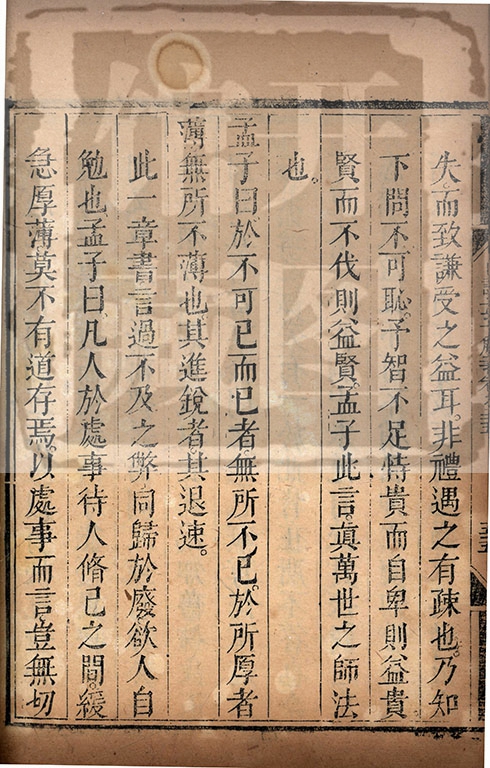 失而致謙受之益耳非禮遇之有疎也乃知
下問不可恥予智不足恃貴而自卑則益貴
賢而不伐則益賢孟子此言眞萬世之師法
也。
孟子曰於不可已而已者無所不已於所厚者
薄無所不薄也其進銳者其退速。
此一章書言過不及之弊同歸於廢欲人自
勉也孟子曰凡人於處事待人脩己之間緩
急厚薄莫不有道存焉以處事而言豈無切